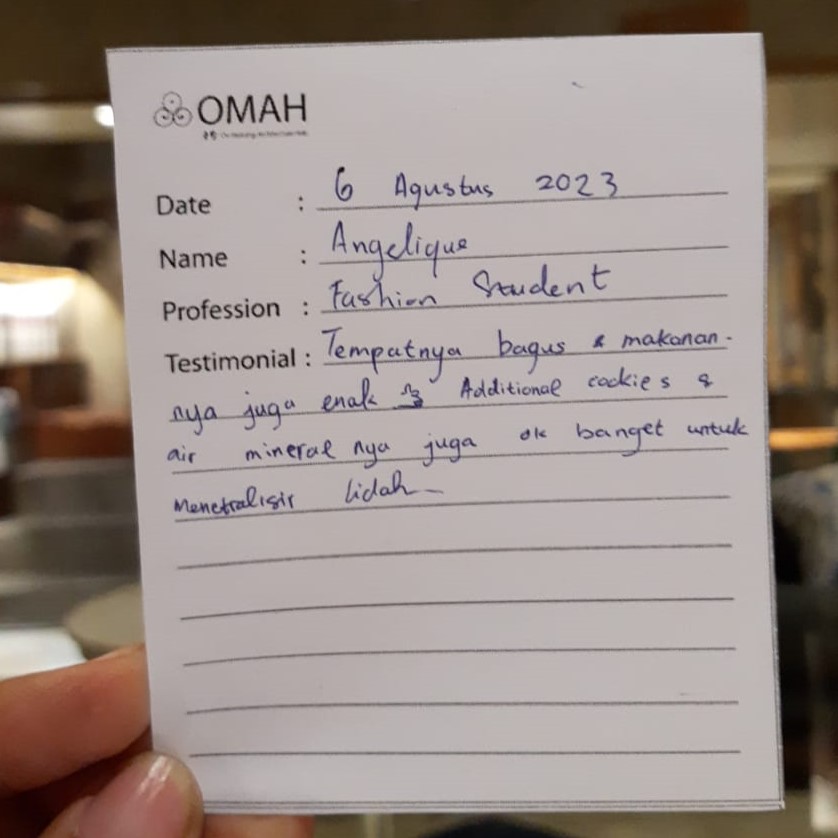 OMAH
Date : 6 Agustus 2023
Name : Angelique
Profession : Fashion Student
Testimonial : Tempatnya bagus & makanan-
nya juga enak Additional cookies &
air mineral nya juga ok banget untuk
Menetralisir lidah